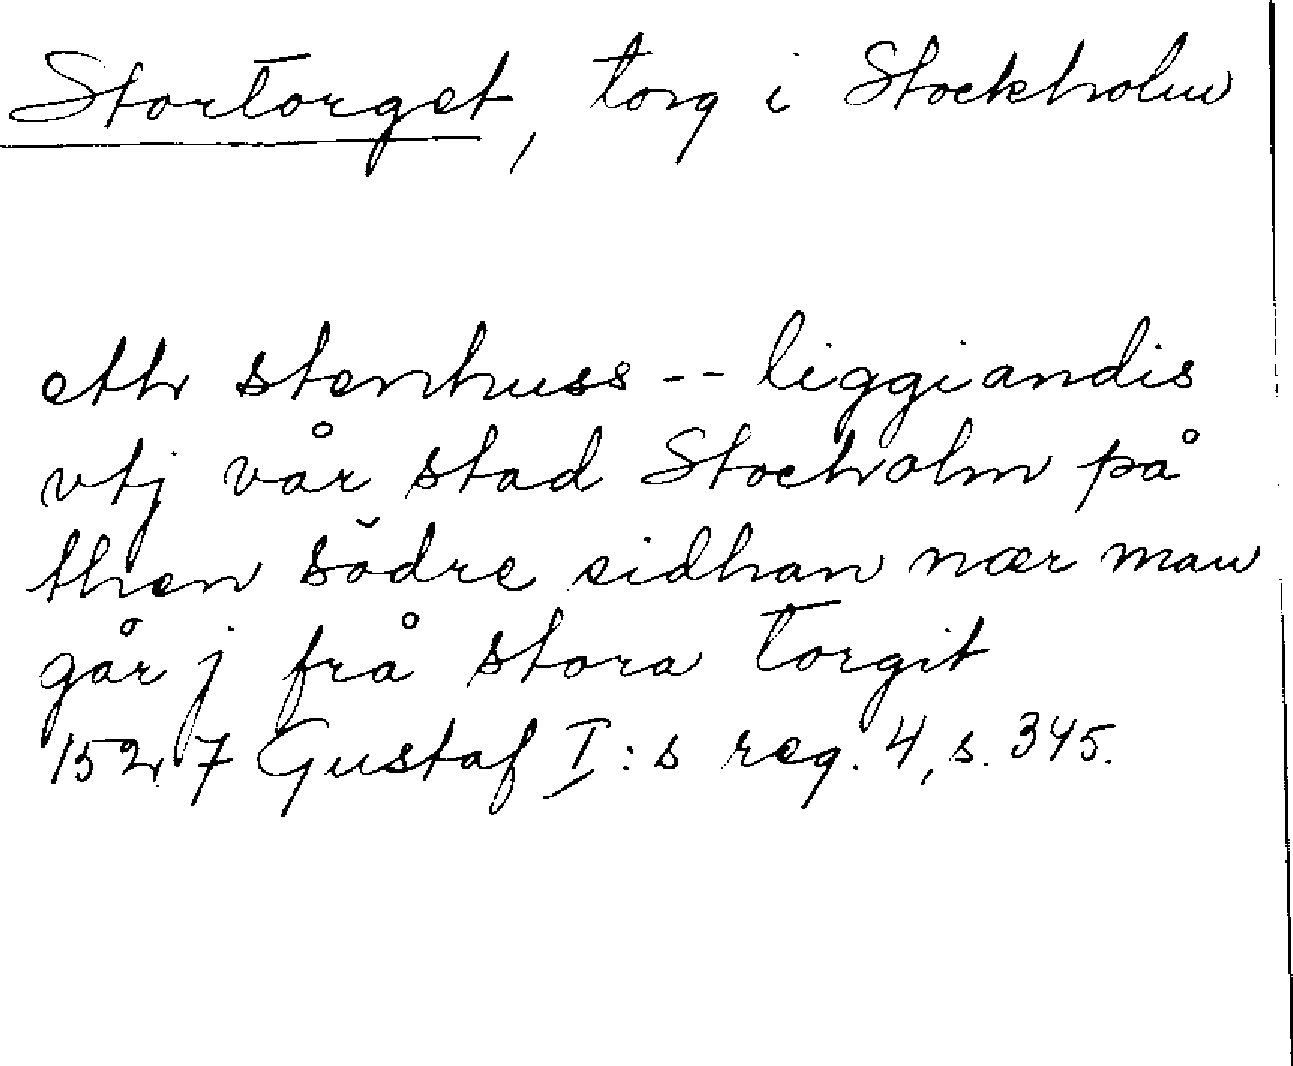 Stortorget, torg i Stockholm
etth stenhuss -- liggiandis
vtj vår stad Stocholm på
then södre sidhan nær man
går j frå stora torgit
1527 Gustaf I:s reg. 4, s. 345.